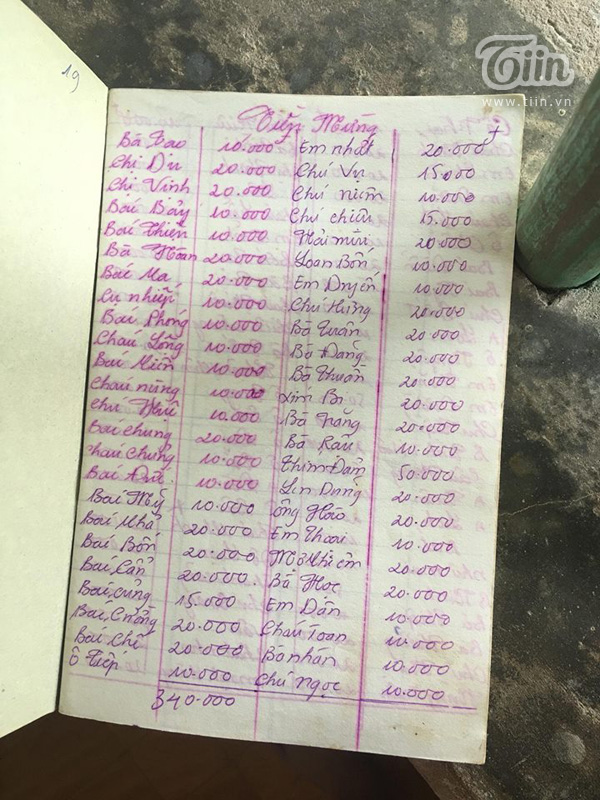 19
Tiin
www.tiin.vn
Tiền Mừng
Bà Bao 10.000
Chị Dư 20.000
Chị Vinh 20.000
Bác Bảy 10.000
Bác Thiện 10.000
Bà Hoàn 20.000
Bác Ma 20.000
Cụ nhiếp 10.000
Bác Phong 10.000
Cháu Long 10.000
Bác Miên 10.000
Cháu nừng 10.000
Chú Như 10.000
Bác Chung 20.000
Cháu Chung 10.000
Bác Đức 10.000
Bác Mỹ 10.000
Bác Nhả 20.000
Bác Bốn 20.000
Bác Cẩn 20.000
Bác cung 15.000
Bác 20.000
Bác Chi 20.000
Ô Tiếp 10.000
340.000
Em nhật 20.000
Chú Vụ 15.000
Chú niềm 10.000
Chú chiều 15.000
Hải mùi 20.000
Loan Bốn 10.000
Em Duyến 10.000
Chú Hưng 20.000
Bà Tuấn 20.000
Bà Đang 20.000
Bà Thuần 20.000
Bi 20.000
Bà năng 20.000
Bà Rậu 10.000
Thím Đam 50.000
Dung 20.000
ông Hào 20.000
Em Thoai 10.000
20.000
Bà Học 20.000
Em Dân 10.000
Cháu Toan 10.000
Bà nhàn 10.000
Chú ngọc 10.000